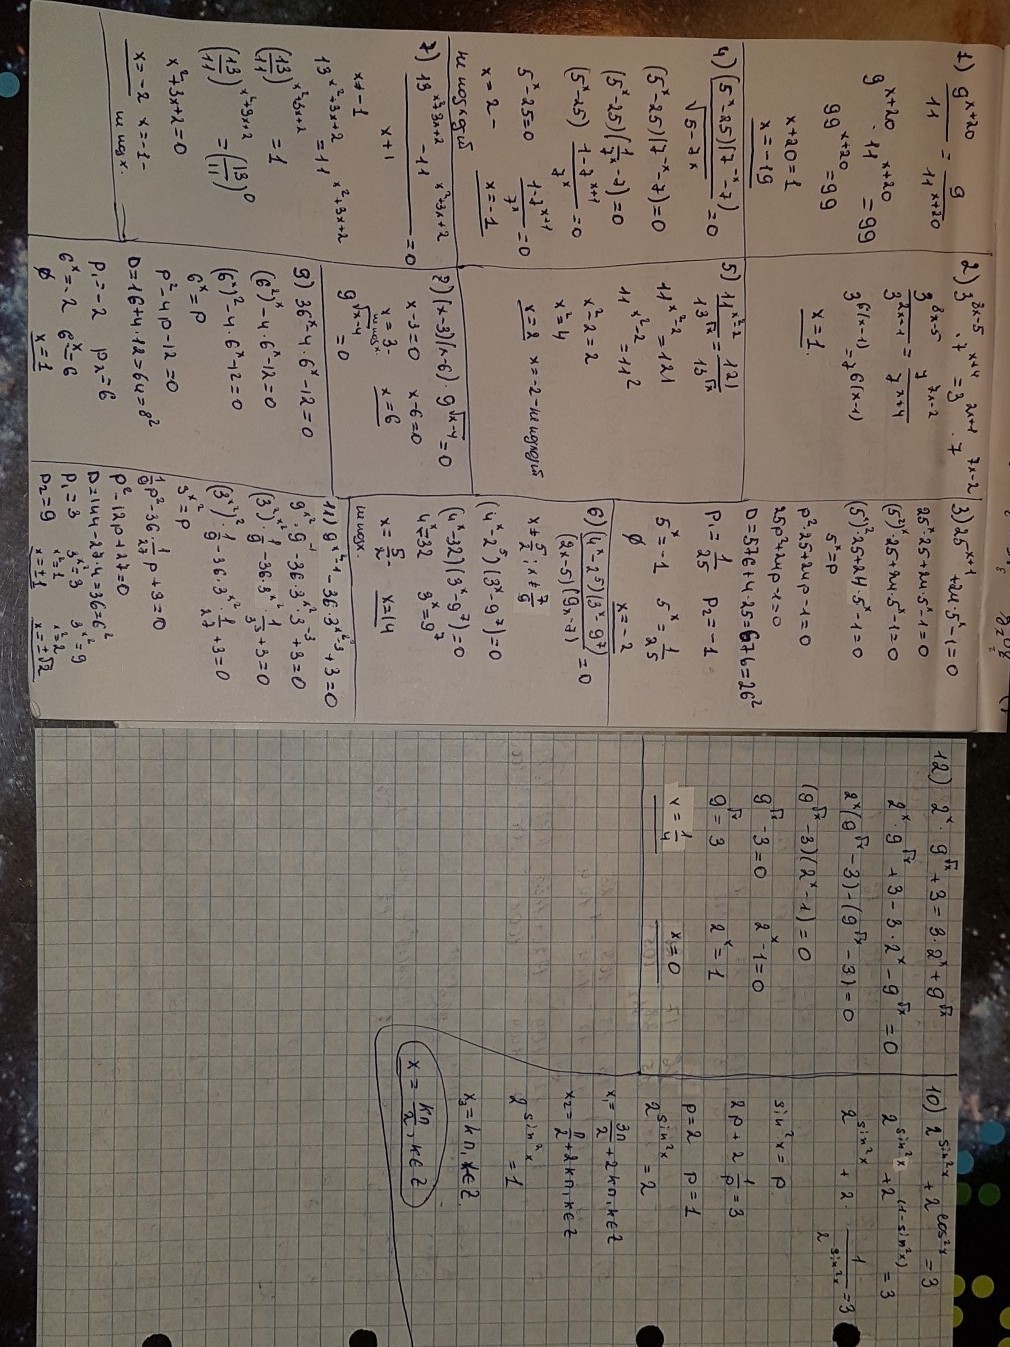 1) 9^{x+20}/11 = 9/11^{x+20}
9^{x+20} · 11^{x+20} = 99
99^{x+20} = 99
x+20=1
x=-19
2) 3^{8x-5} · 7^{x+4} = 3^{2x+1} · 7^{7x-2}
3^{8x-5}/3^{2x-1} = 7^{7x-2}/7^{x+4}
3^{6(x-1)} = 7^{6(x-1)}
x=1.
3) 25^{x+1} + 24·5^x - 1 = 0
25^x·25+24·5^x-1=0
(5^2)^x·25+24·5^x-1=0
(5^x)^2·25+24·5^x-1=0
5^x=p
p^2·25+24p-1=0
25p^2+24p-1=0
D=576+4·25=676=26^2
p_1=1/25 p_2=-1
5^x=-1 5^x=1/25
∅ x=-2
4) (5^x-25)(7^{-x}-7)/√5-7x = 0
(5^x-25)(7^{-x}-7)=0
(5^x-25)(1/7^x-7)=0
(5^x-25) 1-7^{x+1}/7^x=0
5^x-25=0 1-7^{x+1}/7^x=0
x=2- x=-1
не подходит
5) 11^{x^2-2}/13^{√x} = 121/13^{√x}
11^{x^2-2}=121
11^{x^2-2}=11^2
x^2-2=2
x^2=4
x=2 x=-2-не подходит
6) (4^x-2^5)(3^x-9^7)/(2x-5)(9x-7) = 0
x≠5/2; x≠7/9
(4^x-2^5)(3^x-9^7)=0
(4^x-32)(3^x-9^7)=0
4^x=32 3^x=9^7
x=5/2- x=14
не подх.
7) 13^{x^2+3x+2}-11^{x^2+3x+2}/x+1 = 0
x≠-1
13^{x^2+3x+2}=11^{x^2+3x+2}
(13/11)^{x^2+3x+2}=1
(13/11)^{x^2+3x+2}=(13/11)^0
x^2+3x+2=0
x=-2 x=-1-
не подх.
8) (x-3)(x-6)·9^{√x-4}=0
x-3=0 x-6=0
x=3- x=6
не подх.
9^{√x-4}=0
9) 36^x-4·6^x-12=0
(6^2)^x-4·6^x-12=0
(6^x)^2-4·6^x-12=0
6^x=p
p^2-4p-12=0
D=16+4·12=64=8^2
p_1=-2 p_2=6
6^x=-2 6^x=6
∅ x=1
11) 9^{x^2-1}-36·3^{x^2-3}+3=0
9^{x^2}·9^{-1}-36·3^{x^2}·3^{-3}+3=0
(3^2)^{x^2}·1/9-36·3^{x^2}·1/3^3+3=0
(3^{x^2})^2·1/9-36·3^{x^2}·1/27+3=0
3^{x^2}=p
1/9p^2-36·1/27p+3=0
p^2-12p+27=0
D=144-27·4=36=6^2
p_1=3 3^{x^2}=3 3^{x^2}=9
p_2=9 x^2=1 x^2=2
x=±1 x=±√2
12) 2^x·9^{√x}+3=3·2^x+9^{√x}
2^x·9^{√x}+3-3·2^x-9^{√x}=0
2^x(9^{√x}-3)-(9^{√x}-3)=0
(9^{√x}-3)(2^x-1)=0
9^{√x}-3=0 2^x-1=0
9^{√x}=3 2^x=1
x=1/4 x=0
10) 2^{sin^2x}+2^{cos^2x}=3
2^{sin^2x}+2^{(1-sin^2x)}=3
2^{sin^2x}+2·1/2^{sin^2x}=3
sin^2x=p
2p+2 1/p=3
p=2 p=1
2^{sin^2x}=2
x_1=3π/2+2kπ, k∈Z
x_2=π/2+2kπ, k∈Z
2^{sin^2x}=1
x_3=kπ, k∈Z.
x=kπ/2, k∈Z